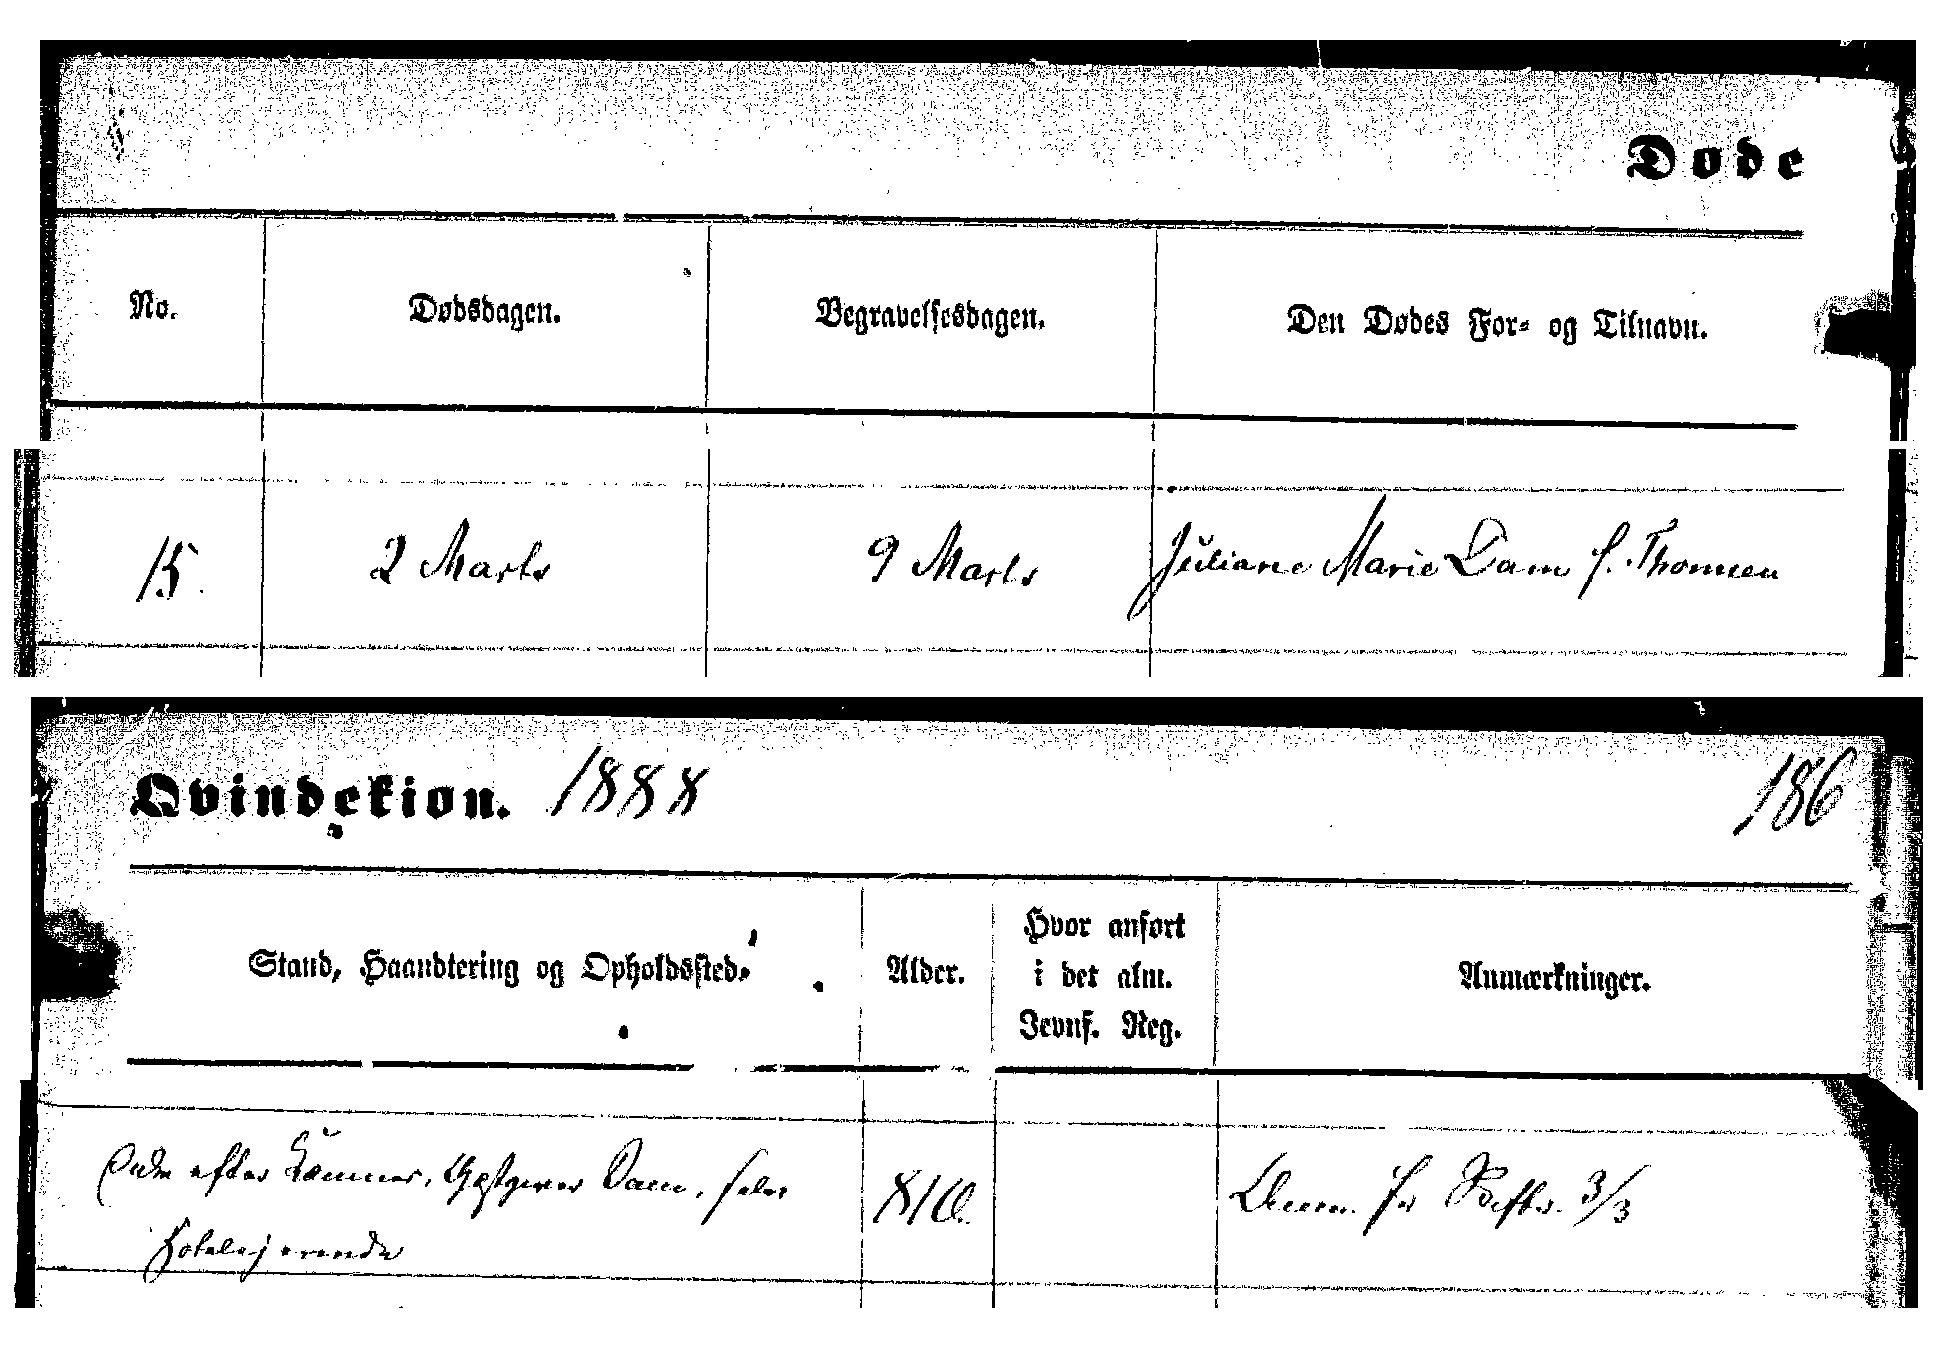 Døde
No.
Dødsdagen.
Begravelsesdagen.
Den Dødes For- og Tilnavn.
15.
2 Marts
9 Marts
Juliane Marie Dam f. Thomsen
Qvindekiøn. 1888
186
Stand, Haandtering og Opholdssted.
Alder.
Hvor anført
i det alm.
Jevnf. Reg.
Anmærkninger.
Enke efter Kæmner, Gæstgiver Dam, selv
Hotelejerinde
81
Anm. fr Skifter. 3/3